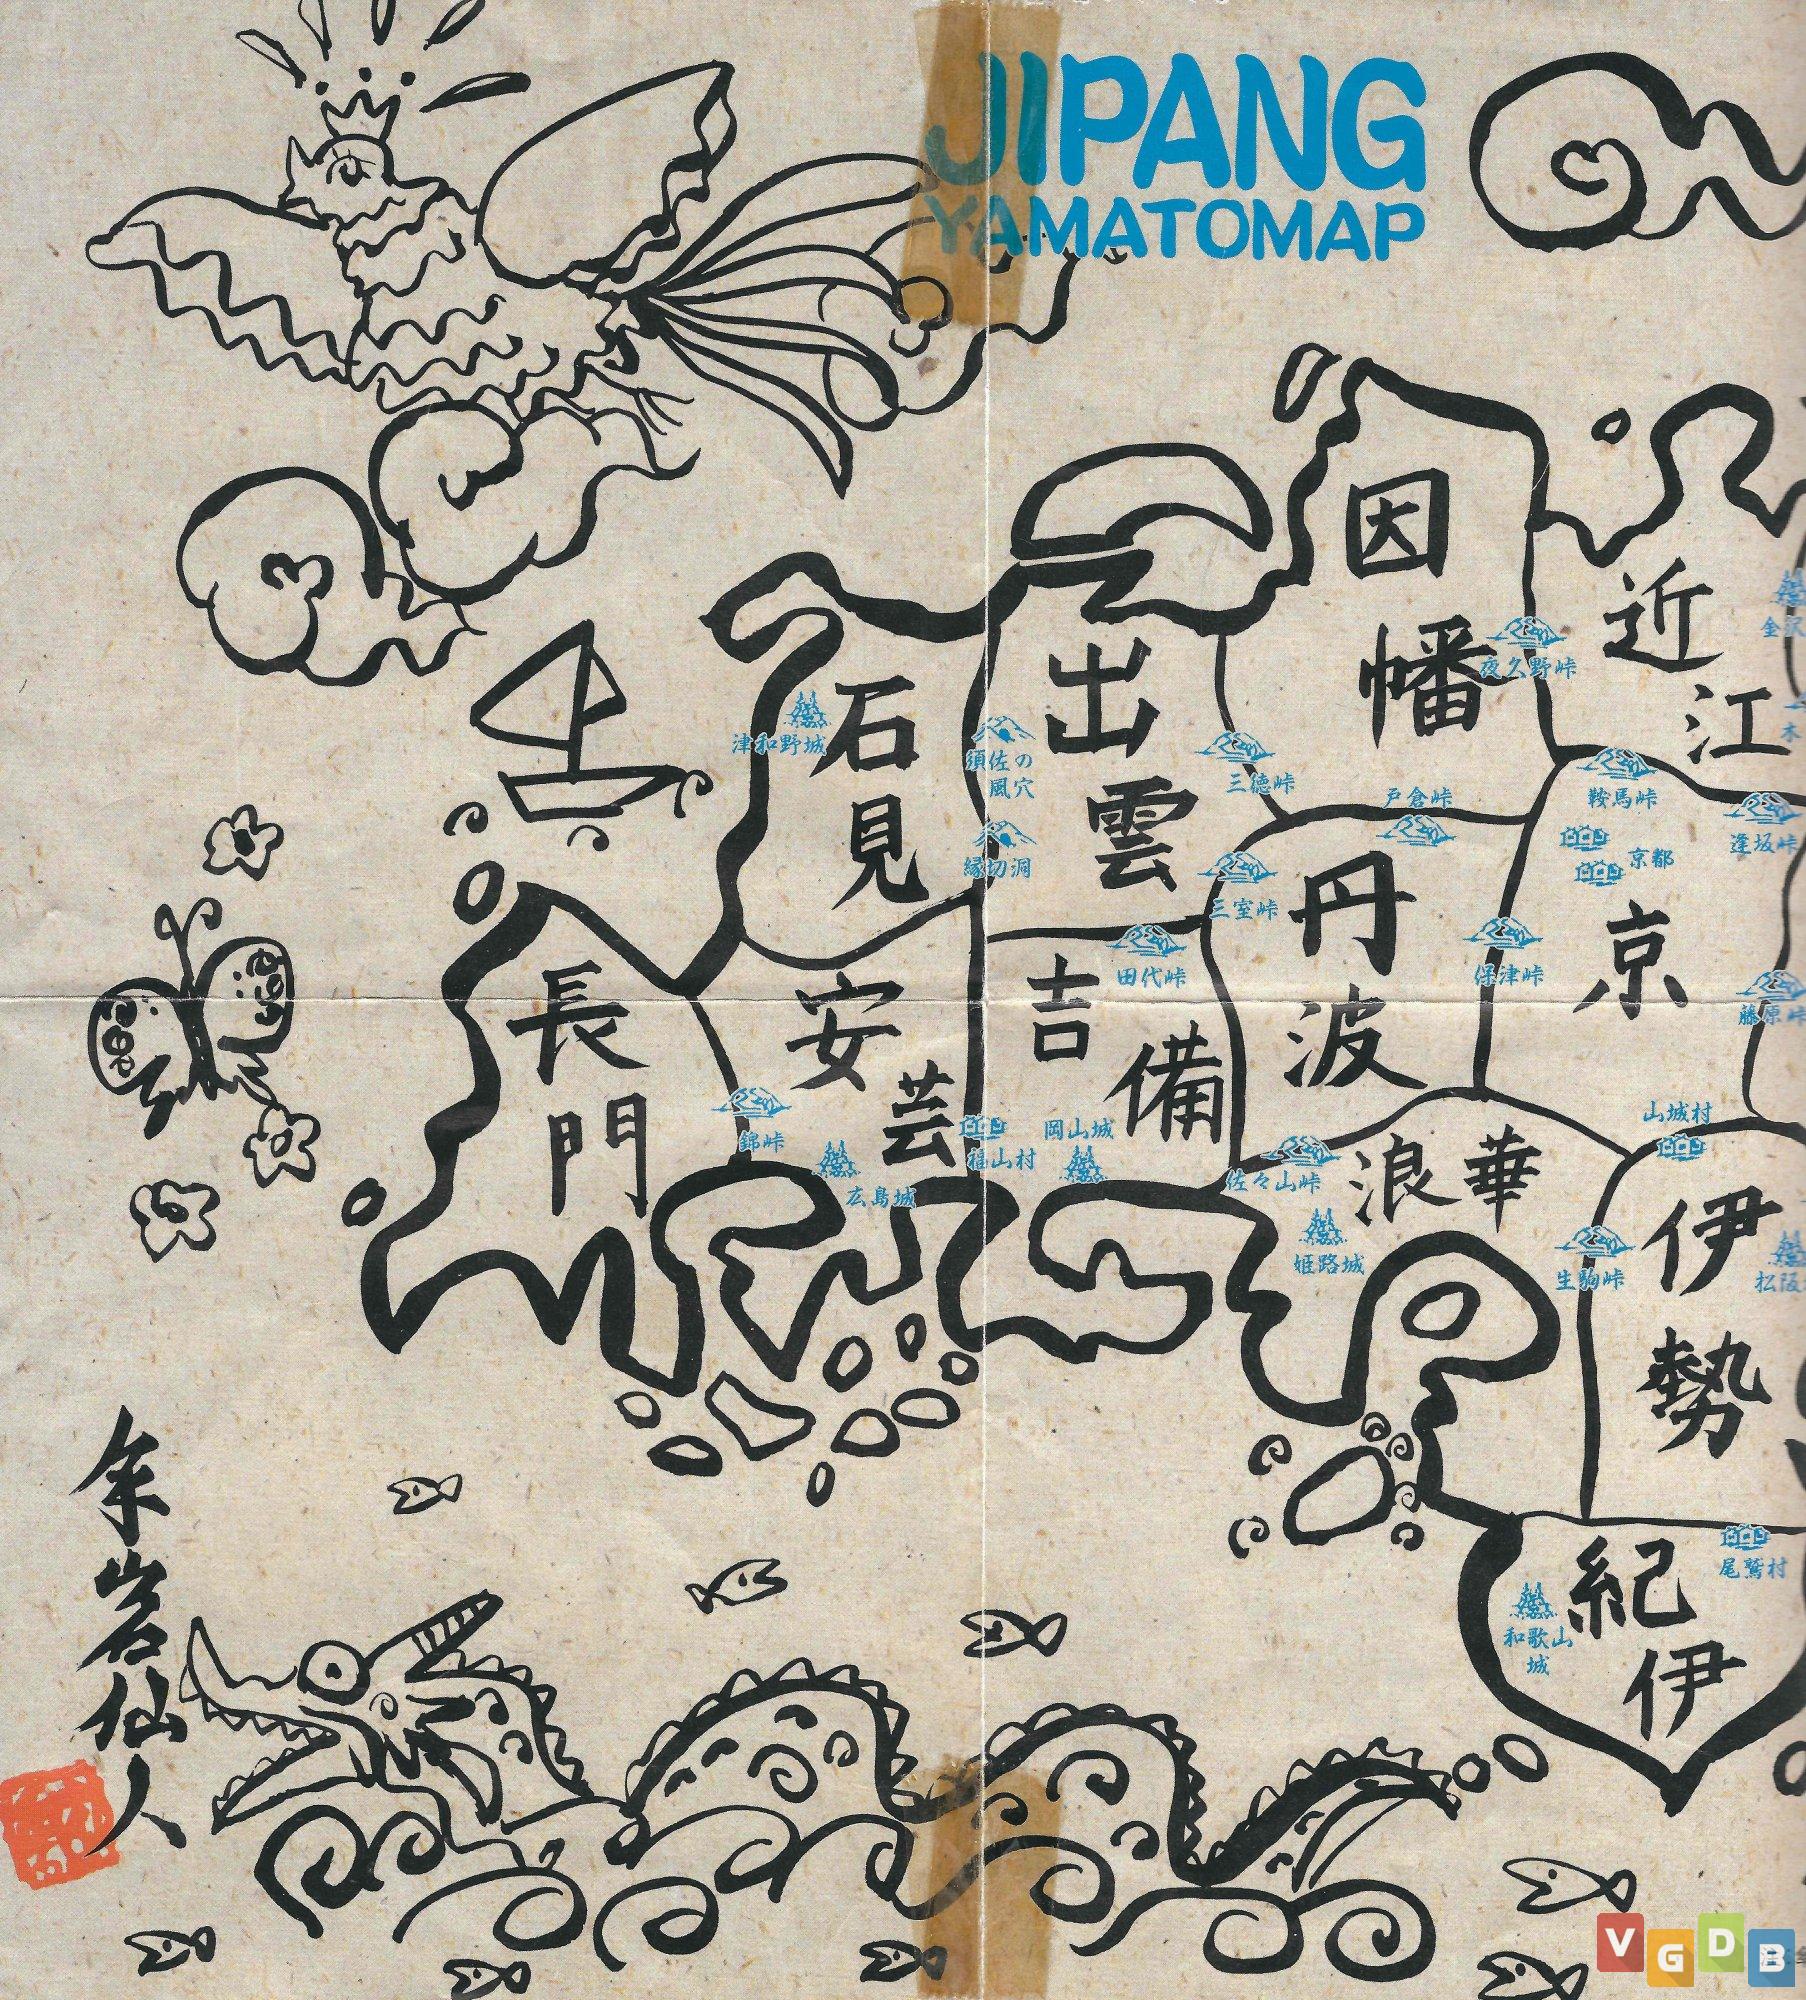 JIPANG
YAMATOMAP
因幡
近江
夜久野峠
石見
津和野城
出雲
須佐の
風穴
縁切洞
三徳峠
戸倉峠
鞍馬峠
逢坂峠
京都
三室峠
丹波
保津峠
京
藤原峠
田代峠
吉備
長門
安芸
錦峠
広島城
福山村
岡山城
佐々山峠
浪華
姫路城
山城村
生駒峠
伊勢
尾鷲村
紀伊
和歌山
城
岩仙人
VGDB